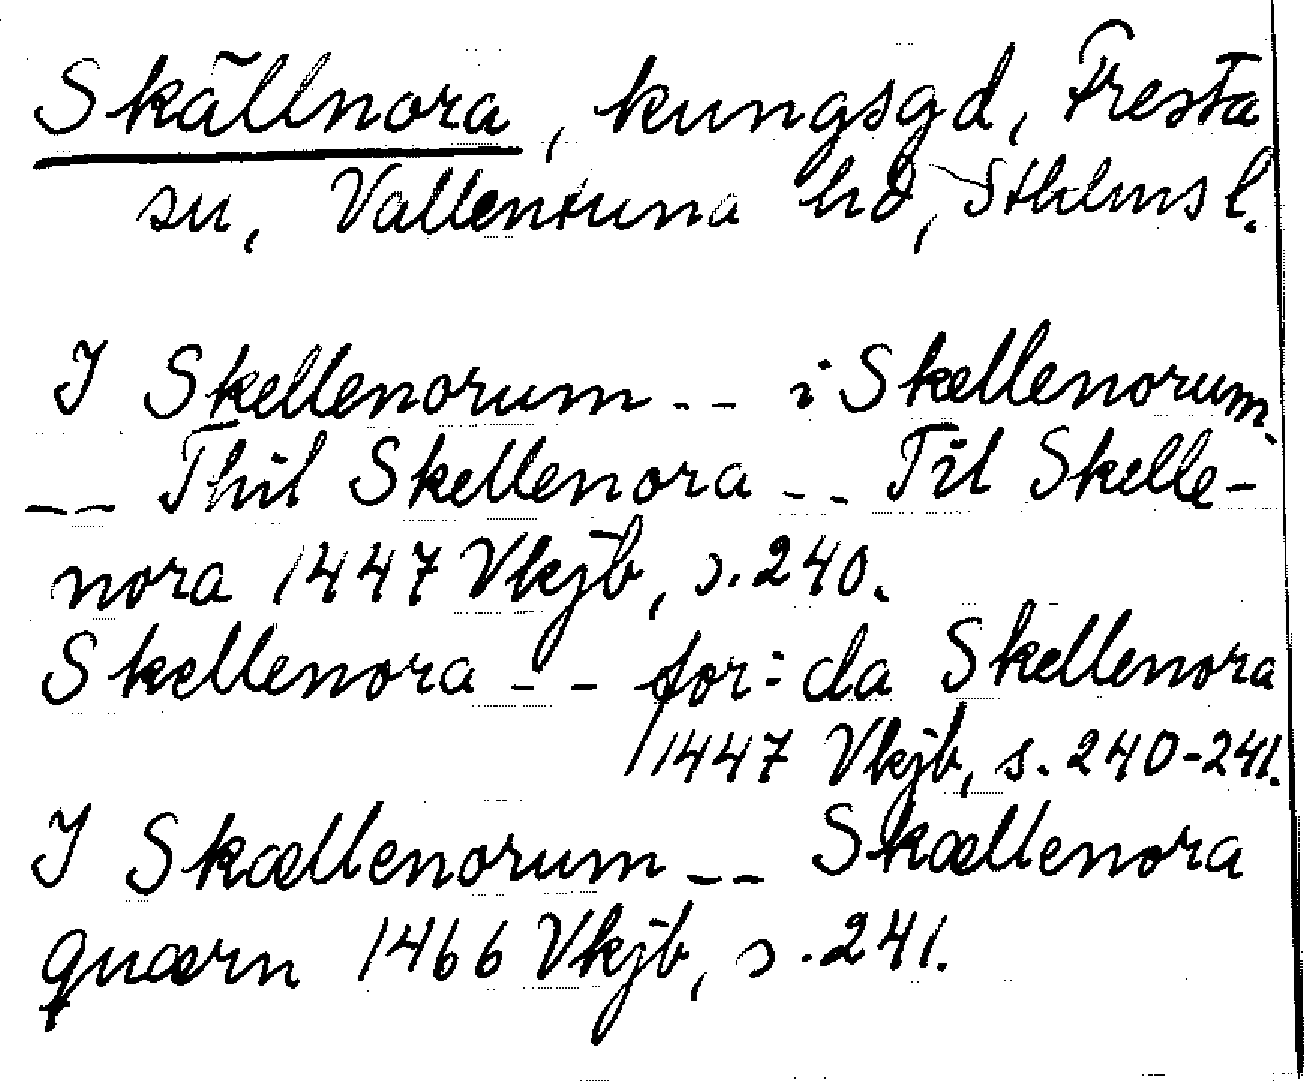 Skällnora, kungsgd, Fresta
sn, Vallentuna hd, Sthlms l.
I Skellenorum -- i Skellenorum
-- Thil Skellenora -- Til Skelle-
nora 1447 Vkjb, s. 240.
Skellenora -- for: da Skellenora
1447 Vkjb, s. 240-241.
I Skællenorum -- Skællenora
quærn 1466 Vkjb, s. 241.